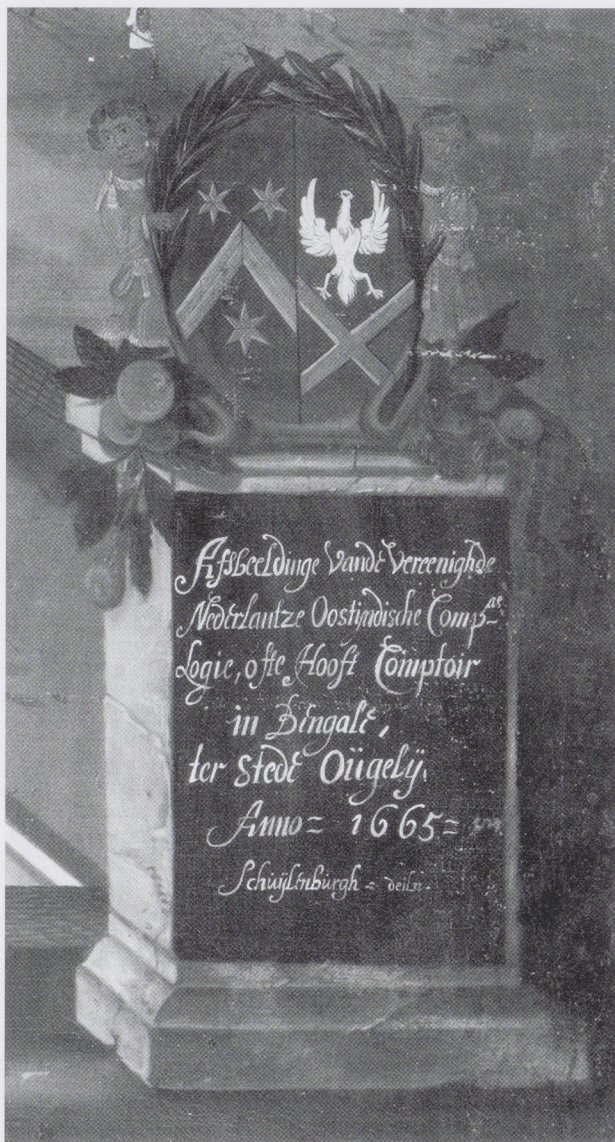 Afsbeeldinge vande vereenighde
Nederlantze Oostindische Comp=ae
Logie, ofte Hooft Comptoir
in Bengale,
ter Stede Oügelÿ.
Anno = 1665 =
Schuÿlenburgh =